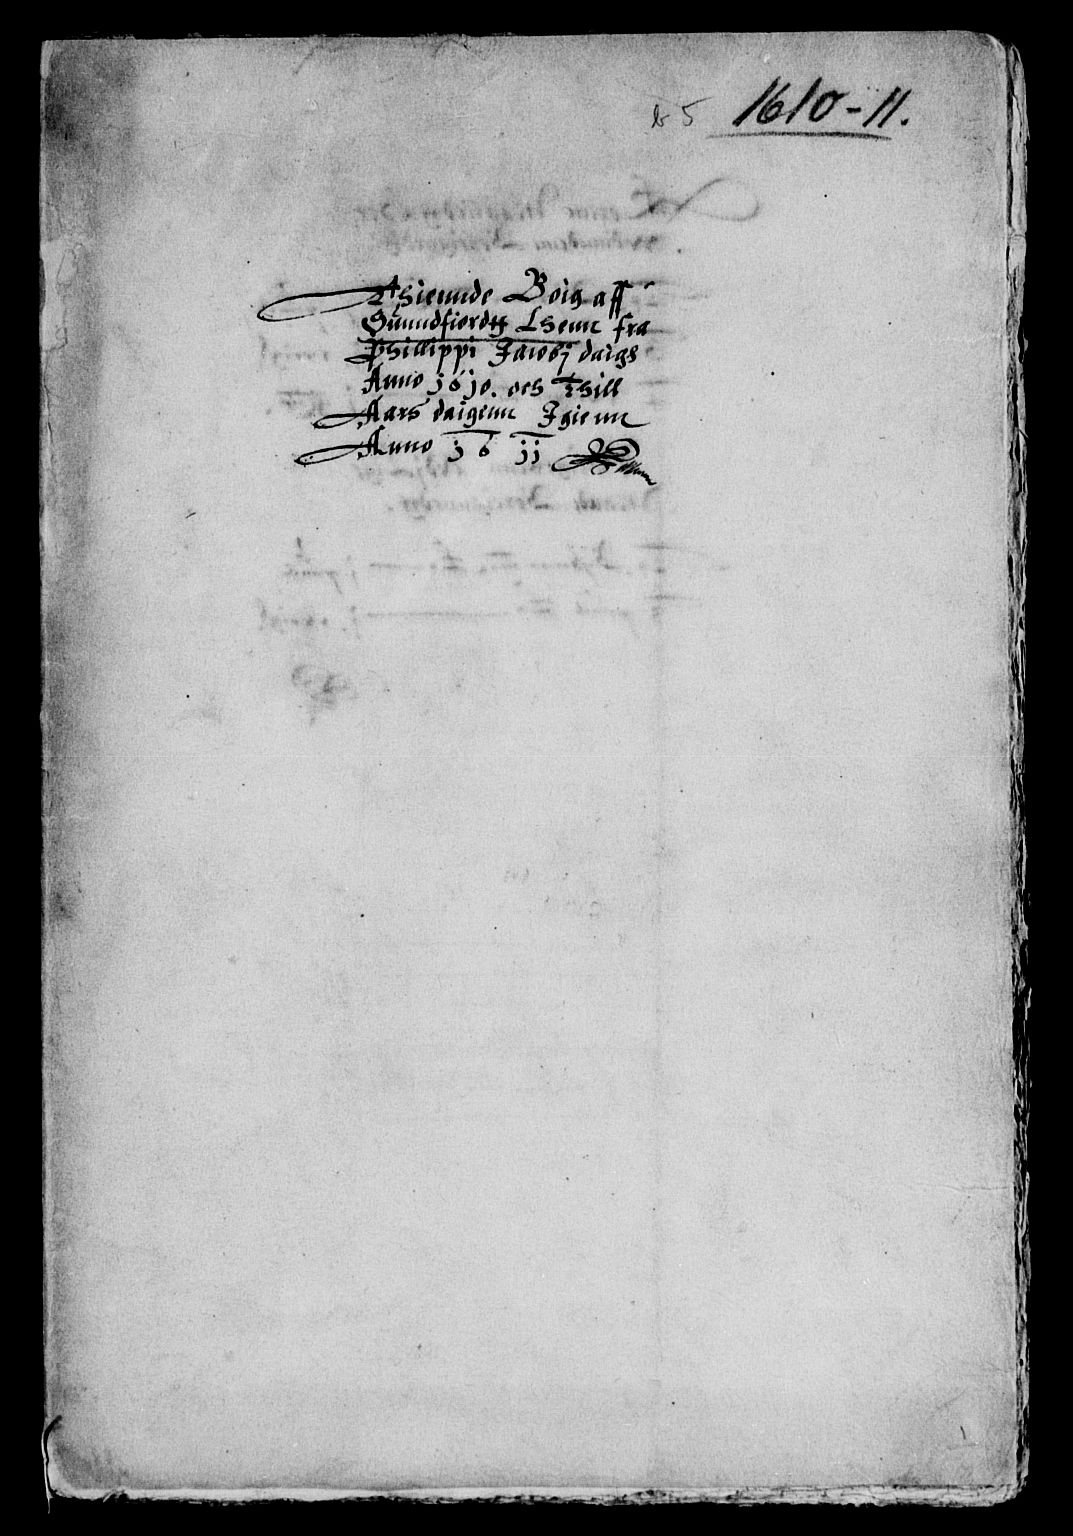 1610-11.
Thiennde Boig aff
Sunndfiordtz Lhenn fra
Phillippi Jacobj daigs
Anno 1610. och Thill
Aars daigenn Igienn
Anno 1611